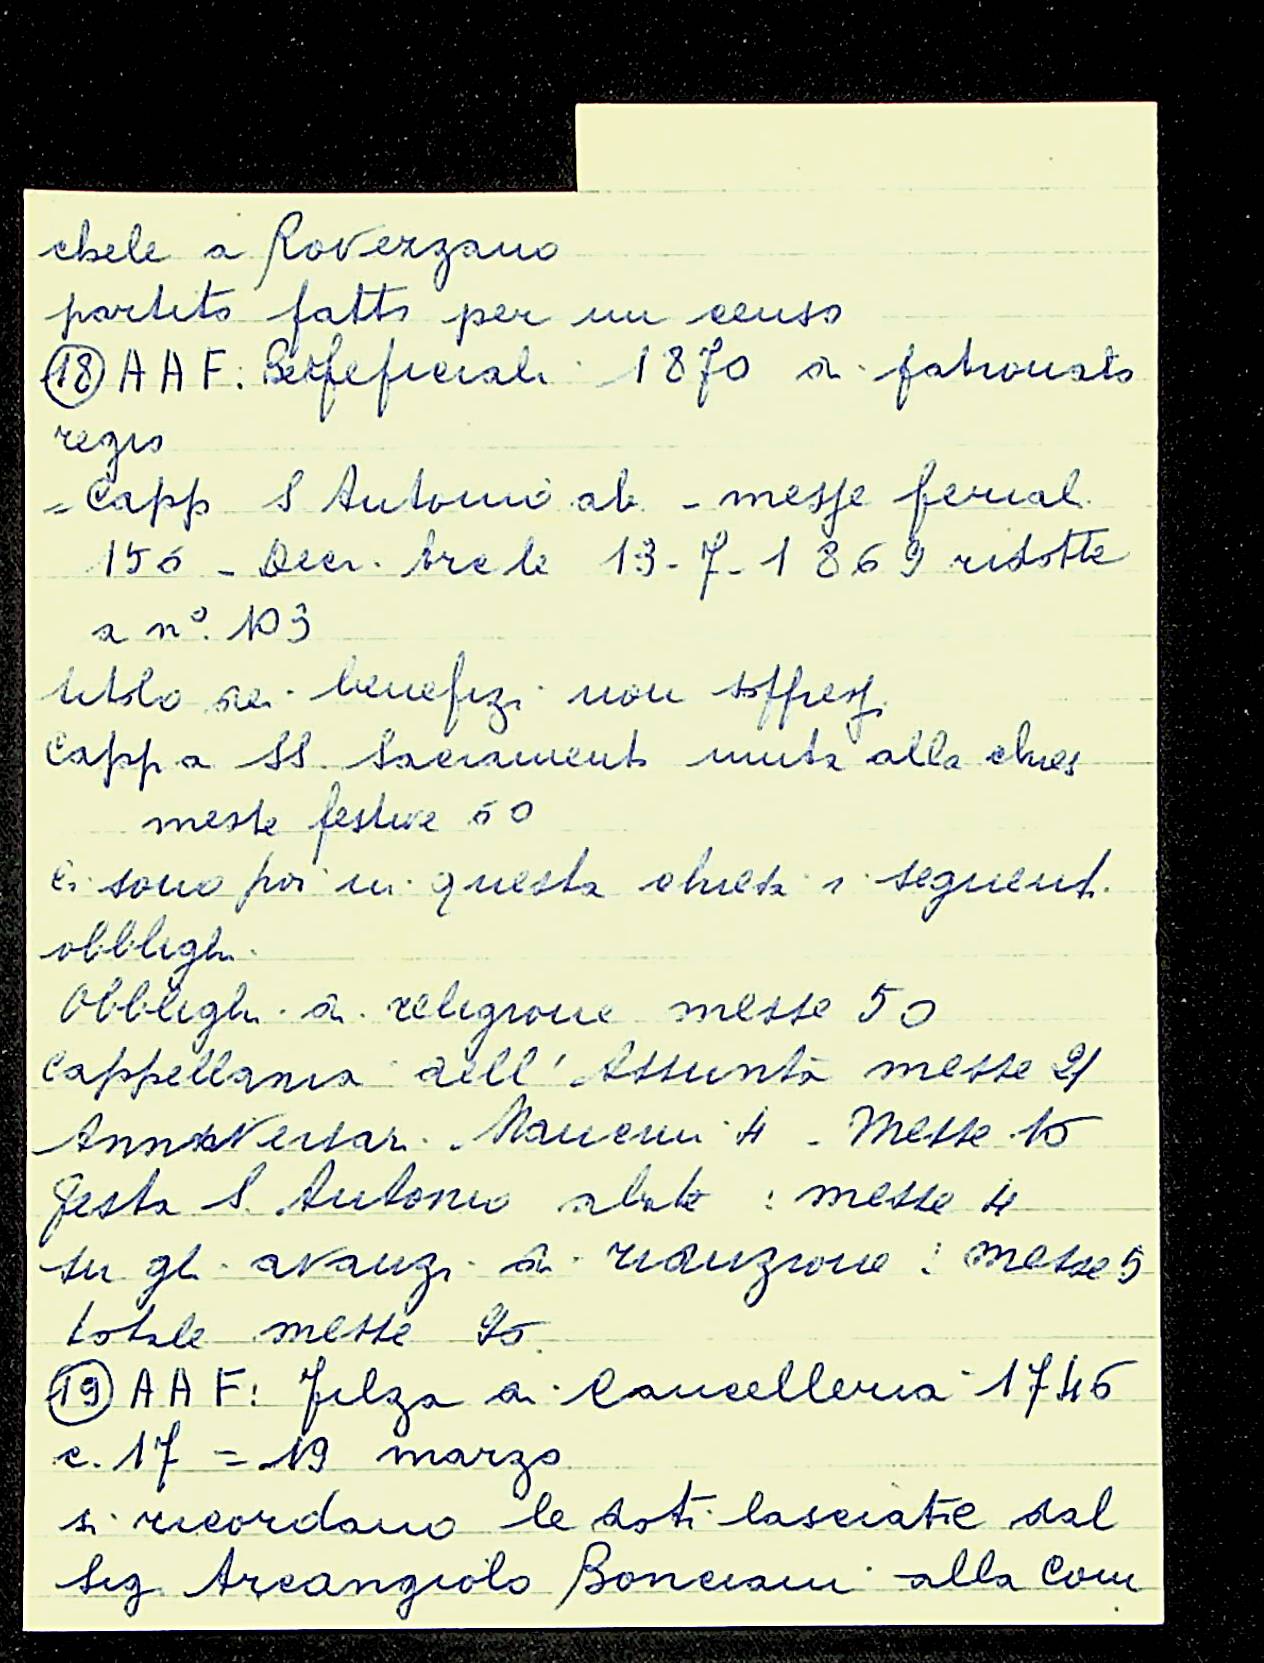 chele a Roverzano
partito fatto per un censo
(18) AAF: Beneficiali 1870 di patronato
regio
= Capp S Antonio ab - messe ferial.
156 - Decr. 13-7-1869 ridotte
a n°. 103
titolo dei benefizi non soppress.
Capp a SS. Sacramento unita alla chies
messe festive 60
Ci sono poi in questa chiesa i seguenti
obblighi.
Obblighi di religione messe 50
Cappellania dell'Assunta messe 21
Anniversari Mancini 4 - Messe 15
festa S. Antonio abate : messe 4
su gli avanzi di riduzione : messe 5
totale messe 95
(19) AAF: Filza di Cancelleria 1746
c. 17 = 19 marzo
si ricordano le doti lasciate dal
Sig Arcangiolo Bonciani alla Com